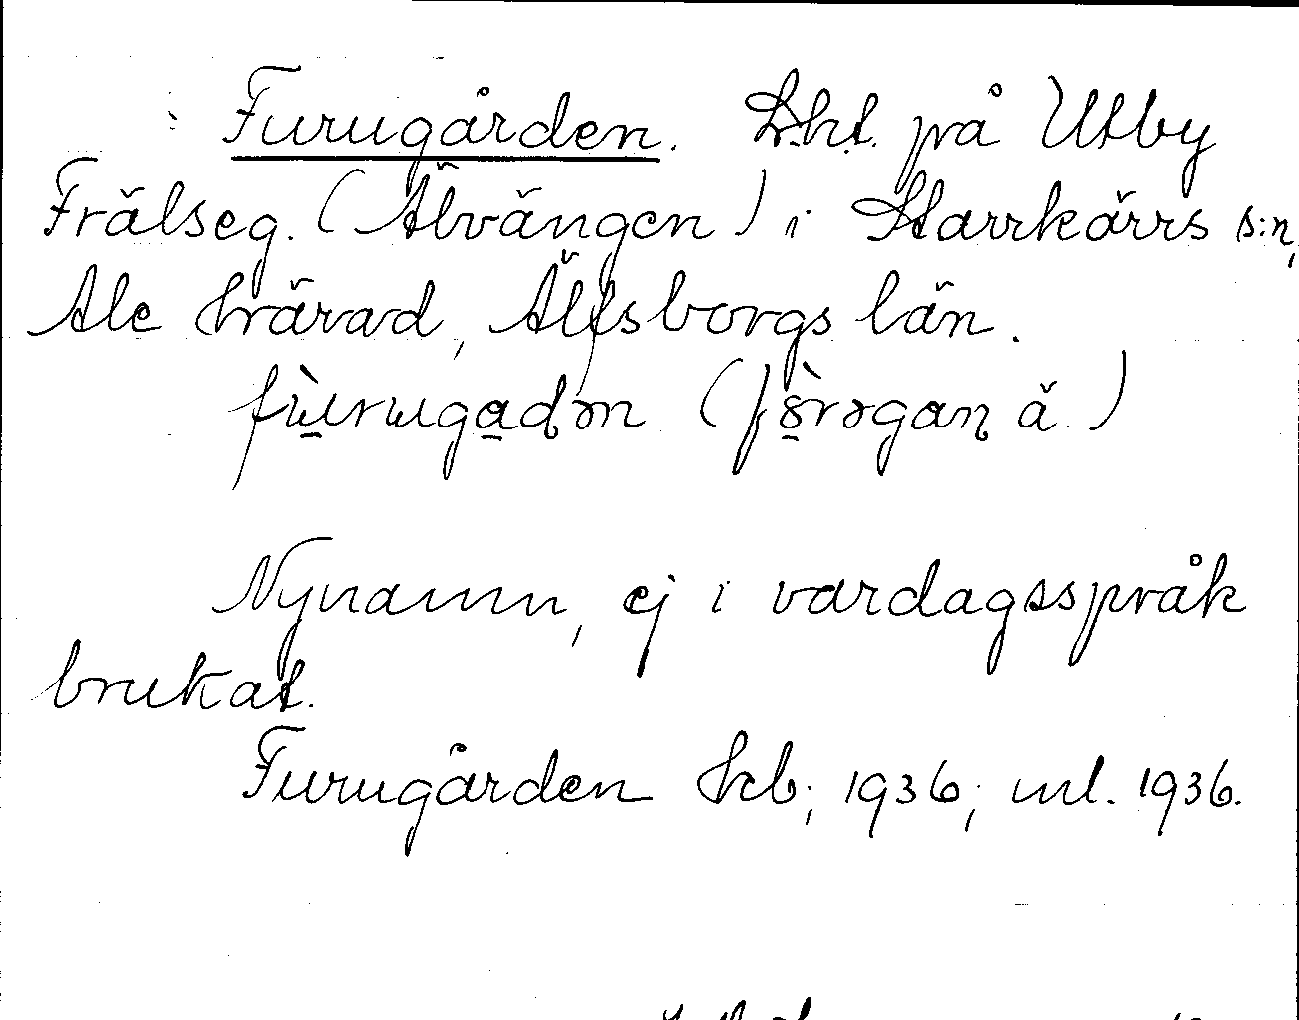 Furugården. Lht. på Utby
Frälseg. (Älvängen) i Starrkärrs s:n,
Ale härad, Älfsborgs län.
fù̱ruga̱dən (fò̱rəgaɳ ä)
Nynamn, ej i vardagsspråk
brukat.
Furugården Hcb; 1936; ml. 1936.